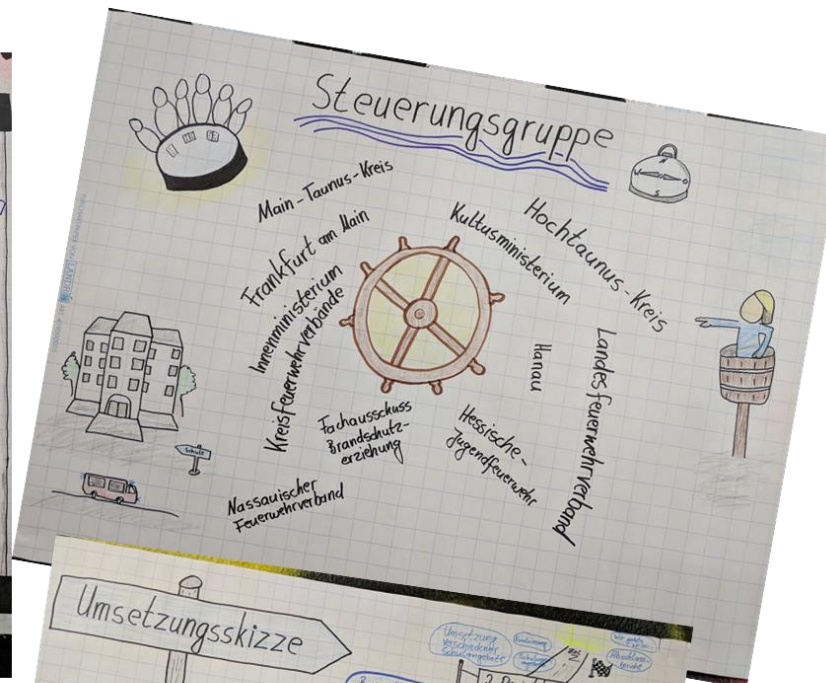 Steuerungsgruppe
Main-Taunus-Kreis
Frankfurt am Main
Innenministerium
Kreisfeuerwehrverbände
Kultusministerium
Hochtaunus-Kreis
Hanau
Landesfeuerwehrverband
Fachausschuss
Brandschutz-
erziehung
Hessische-
Jugendfeuerwehr
Nassauischer
Feuerwehrverband
Schule
Umsetzungsskizze
Umsetzung
verschiedener